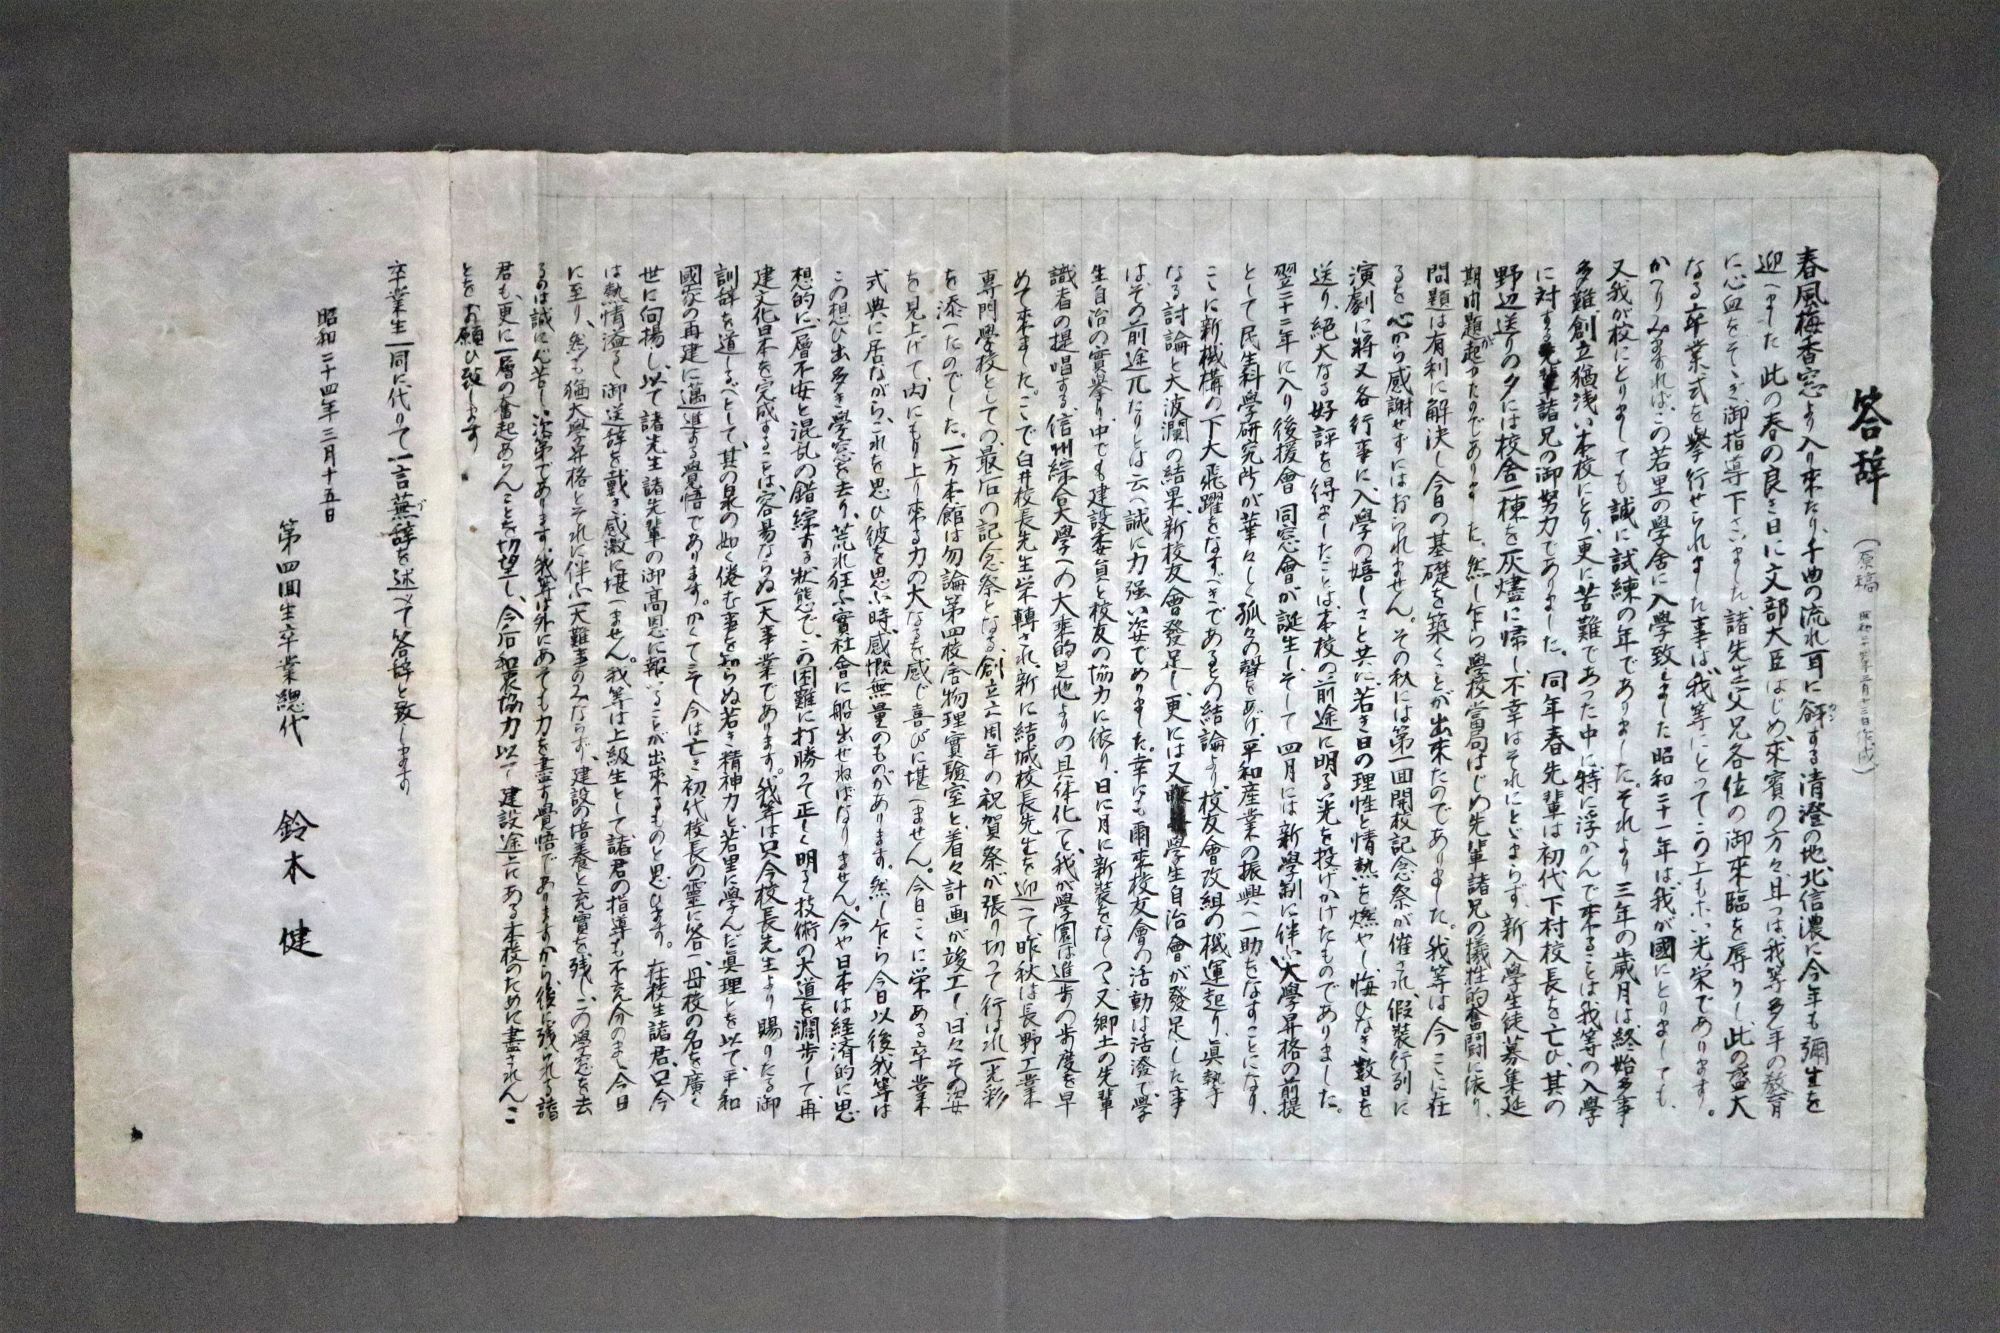 答辞
(原稿 昭和二十四年三月十三日作成)
春風梅香窓より入り来たり、千曲の流れ耳に谺する清澄の地、北信濃に今年も彌生を
カン
迎へました。此の春の良き日に文部大臣はじめ、来賓の方々且つは我等多年の教育
に心血をそゝぎ御指導下さいました諸先生父兄各位の御来臨を辱うし、此の盛大
なる卒業式を挙行せられました事は、我等にとってこの上もない光栄であります。
かへりみますれば、この若里の學舎に入學致しました昭和二十一年は我が國にとりましても、
又我が校にとりましても誠に試練の年でありました。それより三年の歳月は、終始多事
多難、創立猶浅い本校にとり、更に苦難であった中に、特に浮かんで来ることは我等の入學
に対する先輩諸兄の御努力でありました。同年春先輩は初代下村校長を亡ひ、其の
野辺送りの夕には校舎一棟を灰燼に帰し、不幸はそれにとどまらず、新入學生徒募集延
期問題が起ったのでありました。然し乍ら學校當局はじめ先輩諸兄の犠牲的奮闘に依り、
問題は有利に解決し今日の基礎を築くことが出来たのでありました。我等は今こゝに在
るを心から感謝せずにはおられません。その秋には第一回開校記念祭が催され、假装行列に
演劇に將又各行事に、入學の嬉しさと共に、若き日の理性と情熱を燃やし悔ひなき数日を
送り、絶大なる好評を得ましたことは本校の前途に明るい光を投げかけたものでありました。
翌二十二年に入り後援會、同窓會が誕生し、そして四月には新學制に伴ふ大學昇格の前提
として民生科學研究所が華々しく孤々の聲をあげ、平和産業の振興へ一助をなすことになり、
こゝに新機構の下大飛躍をなすべきであるとの結論より、校友會改組の機運起り、眞執
なる討論と大波瀾の結果、新校友會發足し、更には又學生自治會が發足した事
はその前途兀たりとは云へ誠に力強い姿でありました。幸にも爾来校友會の活動は活溌で學
生自治の實挙り中でも建設委員と校友の協力に依り、日に月に新装をなしつゝ、又郷土の先輩
識者の提唱する信州綜合大學への大乗的見地よりの具体化で、我が學園は進歩の歩度を早
めて来ました。こゝで白井校長先生栄轉され、新に結城校長先生を迎へて昨秋は長野工業
専門學校としての最后の記念祭となる、創立五周年の祝賀祭が張り切って行はれ一光彩
を添へたのでした。一方本館は勿論第四校舎物理實驗室と着々計画が竣工し、日々その姿
を見上げて、内にもり上り来る力の大なるを感じ喜びに堪へません。今日こゝに栄ある卒業
式典に居ながら、これを思ひ彼を思ふ時、感慨無量のものがあります。然し乍ら今日以後我等は
この想ひ出多き學窓を去り、荒れ狂ふ實社會に船出せねばなりません。今や日本は経済的に思
想的に、一層不安と混乱の錯綜する状態で、この困難に打勝って正しく明るく技術の大道を濶歩して、再
建文化日本を完成することは容易ならぬ一大事業であります。我等は只今校長先生より賜りたる御
訓辞を道しるべとして、其の泉の如く倦む事を知らぬ若き精神力と若里に学んだ眞理とを以て、平和
國家の再建に邁進する覚悟であります。かくてこそ今は亡き初代校長の靈に答へ、母校の名を廣く
世に向揚し、以て諸先生諸先輩の御高恩に報いることが出来るものと思ひます。在校生諸君、只今
は熱情溢るゝ御送辞を戴き感激に堪へません。我等は上級生として諸君の指導も不充分のまゝ今日
に至り、然も猶大學昇格とそれに伴ふ一大難事のみならず、建設の培養と充實を残しこの學窓を去
るのは誠に心苦しい次第であります。我等は外にあっても力を盡す覺悟でありますから、後に残られる諸
君も更に一層の奮起あらんことを切望し、今后和衷協力以て建設途上にある本校のために盡されんこ
とをお願ひ致します。
卒業生一同に代りて一言蕪辞を述べて答辞と致します
昭和二十四年三月十五日
第四回生卒業總代 鈴木 健